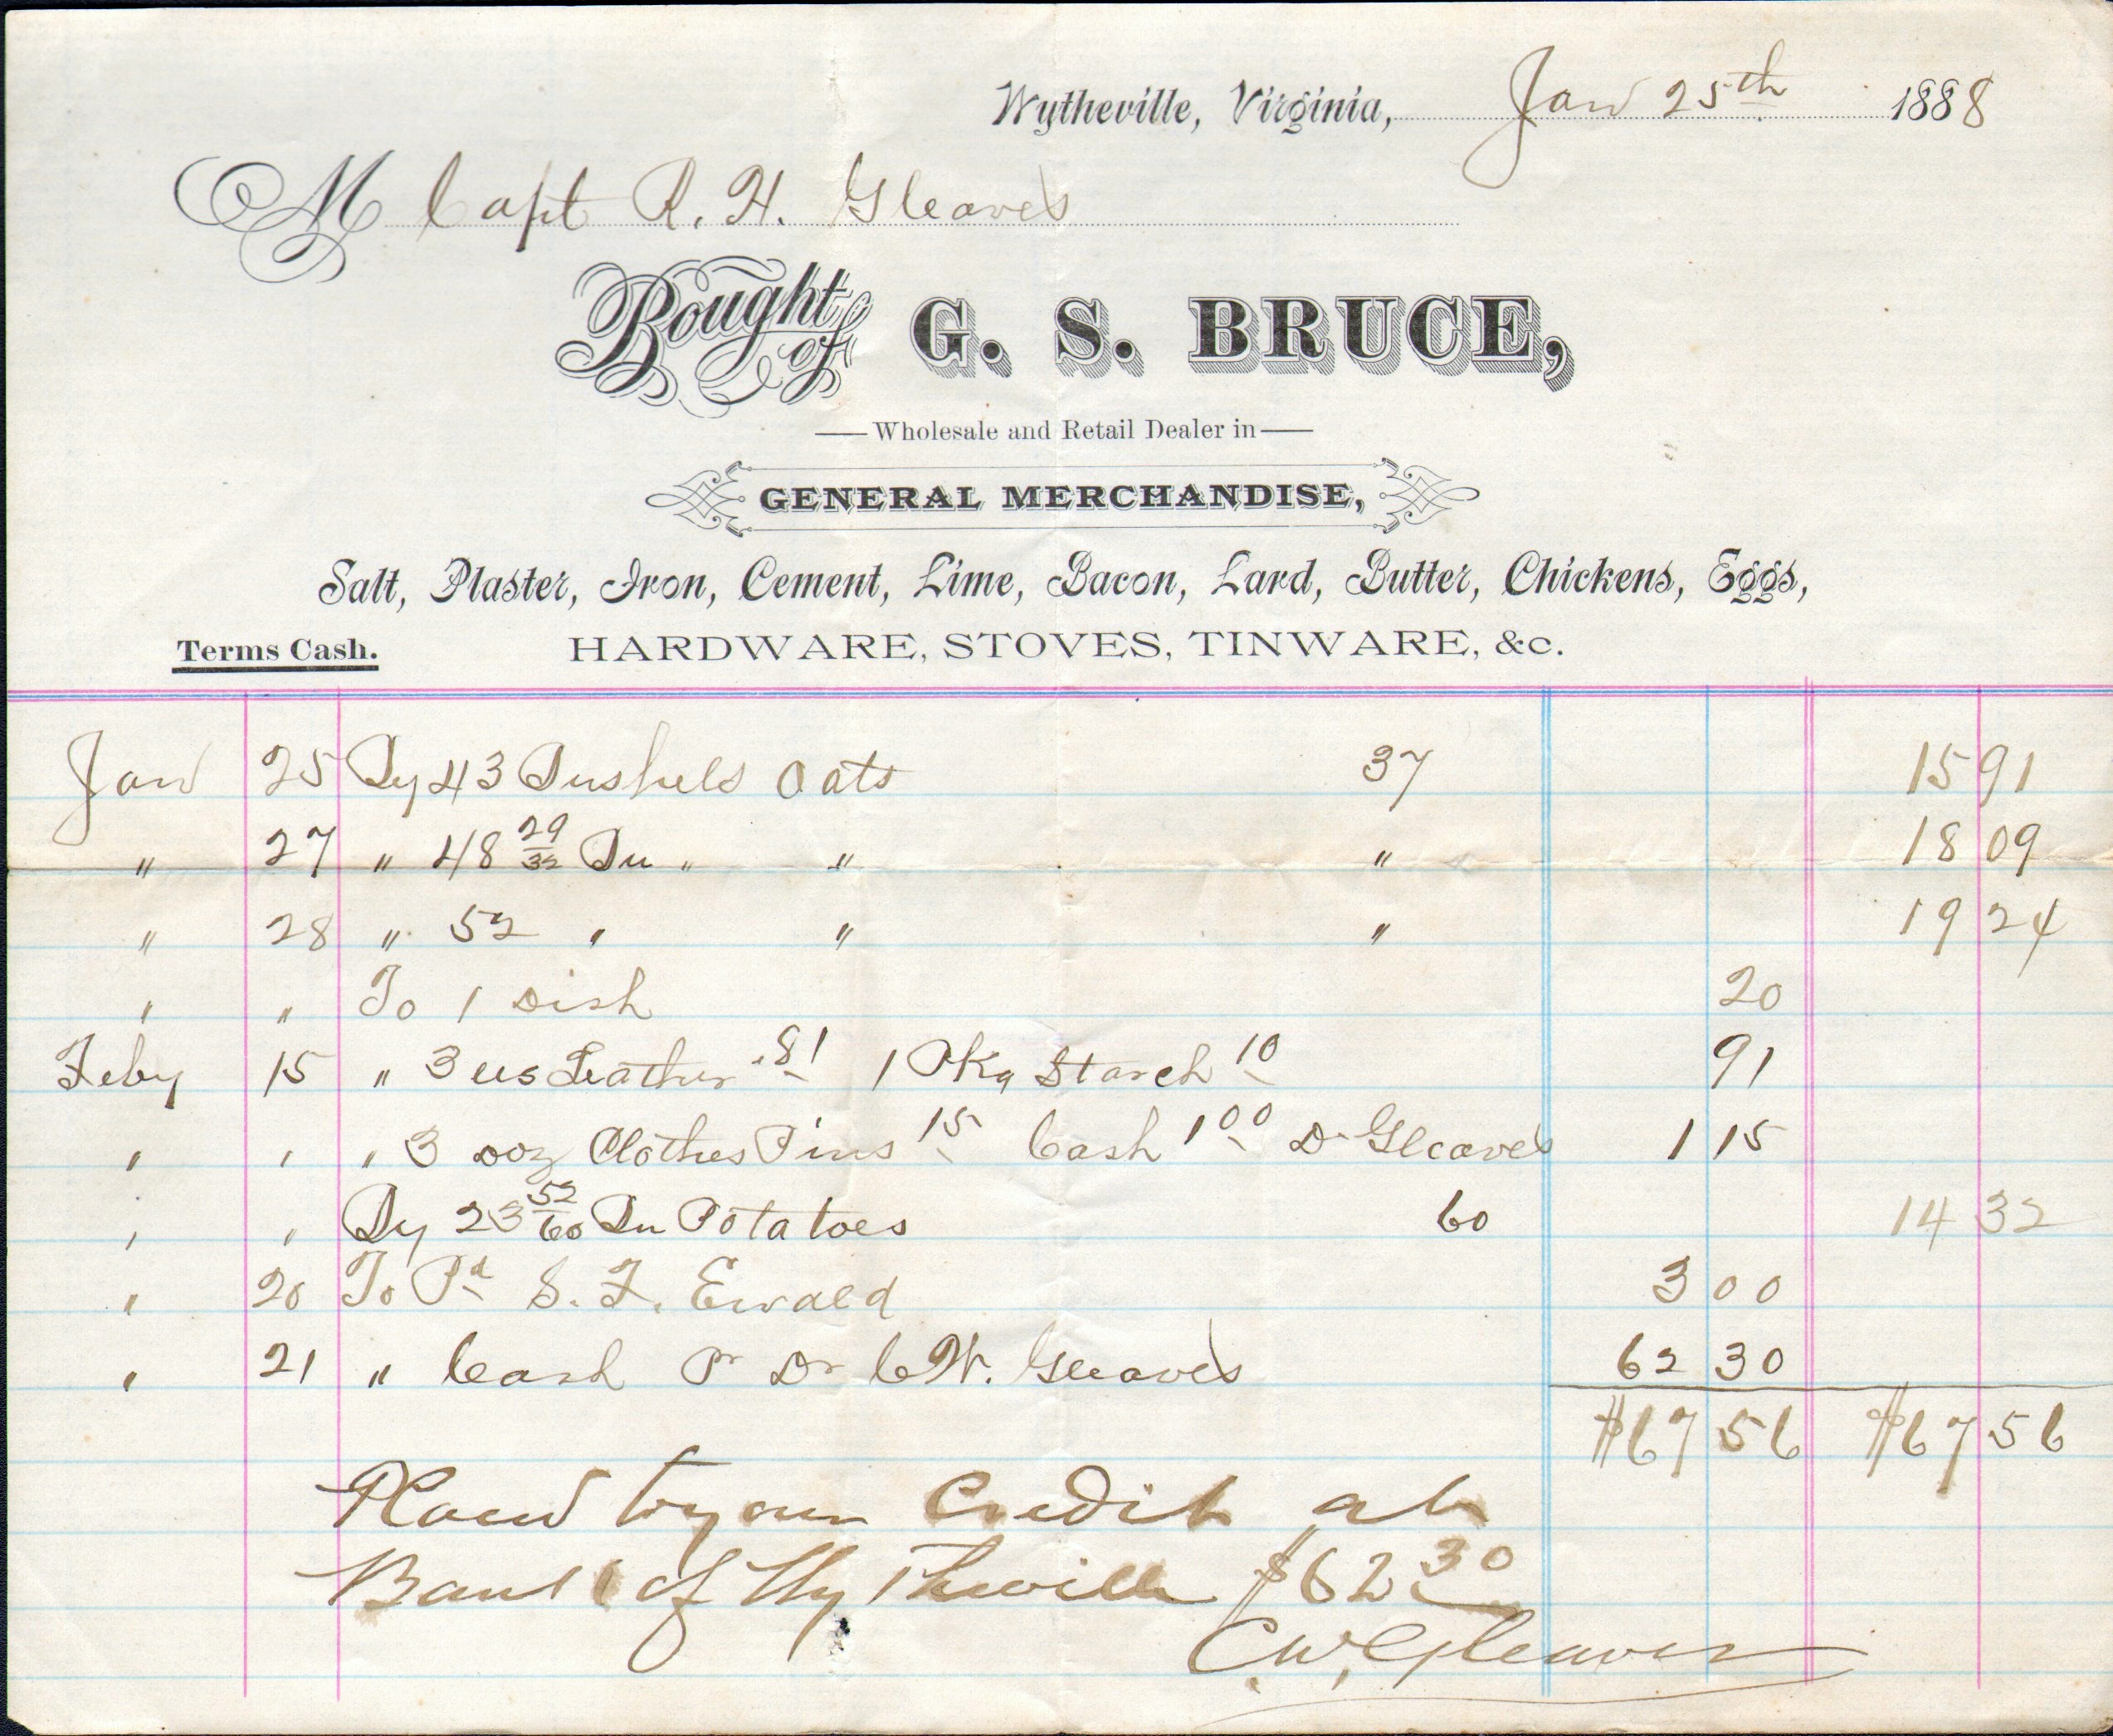 Wytheville, Virginia, Jan 25th 1888
M Capt R. H. Gleaves
Bought of G. S. BRUCE,
Wholesale and Retail Dealer in
GENERAL MERCHANDISE,
Salt, Plaster, Iron, Cement, Lime, Bacon, Lard, Butter, Chickens, Eggs,
Terms Cash. HARDWARE, STOVES, TINWARE, &c.
Jan 25 By 43 Bushels Oats 37 15 91
" 27 " 48 29/32 Bu " " " 18 09
" 28 " 52 " " " 19 24
" " To 1 Dish 20
Feby 15 " 3 Leather .81 1 Pkg Starch 10 91
" " " 3 Doz Clothes Pins 15 Cash 1 00 D Gleaves 1 15
" " By 23 52/60 Bu Potatoes 60 14 32
" 20 To Pd S. F. Ewald 3 00
" 21 " Cash Pr Dr C W. Gleaves 62 30
$67 56 $67 56
Placed to your Credit at
Bank of Wytheville $62 30
C. W. Gleaves